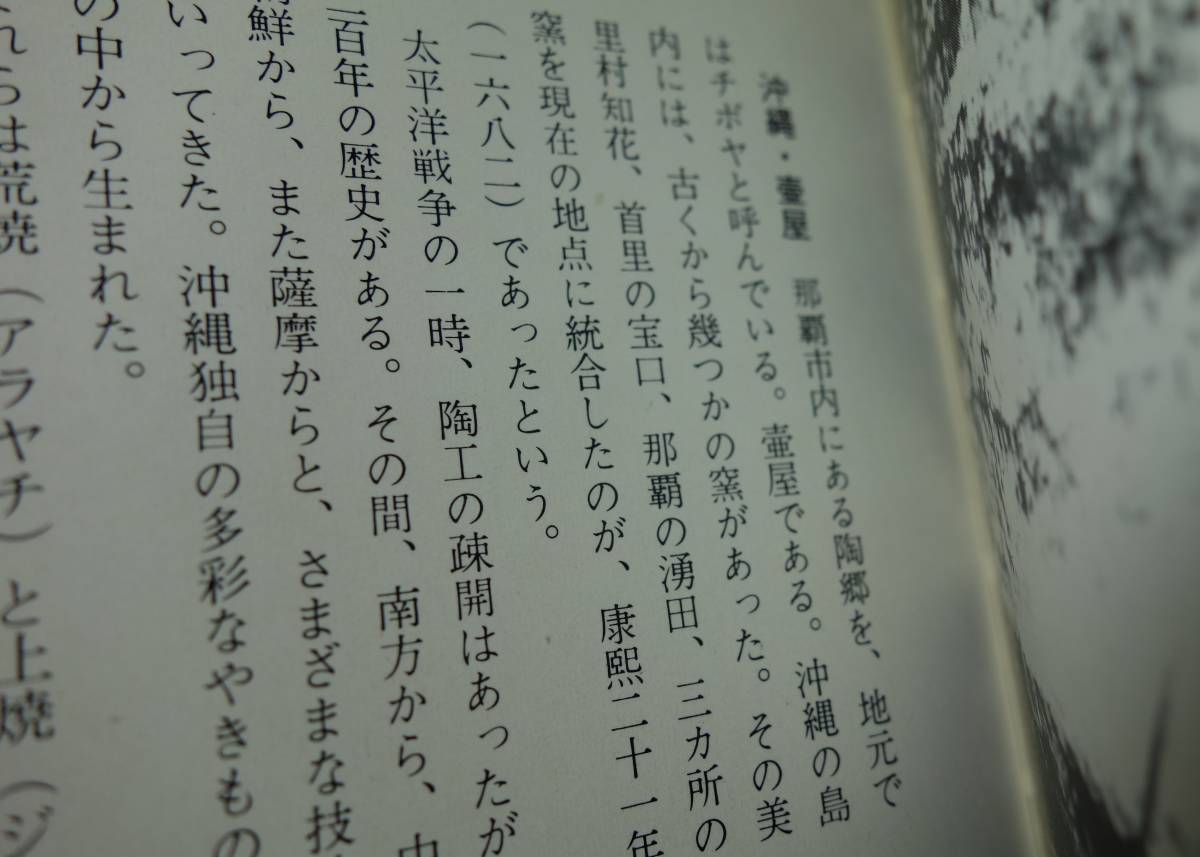 沖縄・壷屋　那覇市内にある陶郷を、地元で
はチボヤと呼んでいる。壷屋である。沖縄の島
内には、古くから幾つかの窯があった。その美
里村知花、首里の宝口、那覇の湧田、三カ所の
窯を現在の地点に統合したのが、康熙二十一年
（一六八二）であったという。
太平洋戦争の一時、陶工の疎開はあったが
百年の歴史がある。その間、南方から、
鮮から、また薩摩からと、さまざまな技
いってきた。沖縄独自の多彩なやきもの
の中から生まれた。
れらは荒焼（アラヤチ）と上焼（ジ